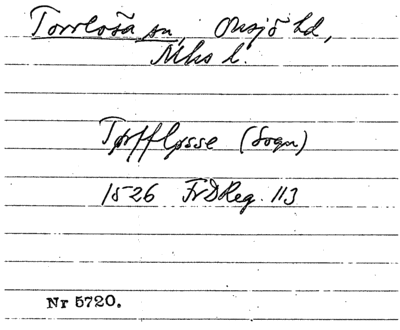 Torrlösa sn, Onsjö hd,
Mhs l.
Tørffløsse (Sogn)
1526 FrDReg. 113
Nr 5720.